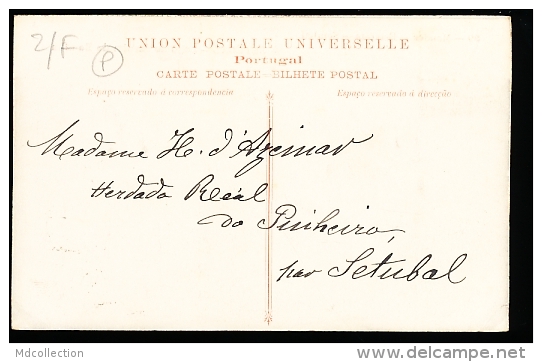 2/F
P
UNION POSTALE UNIVERSELLE
Portugal
CARTE POSTALE - BILHETE POSTAL
Espaço reservado á correspondencia
Espaço reservado á direcção
Madame H. d'Azeinar
Herdada Real
do Pinheiro,
par Setubal
Mdcollection
http://www.delcampe.net